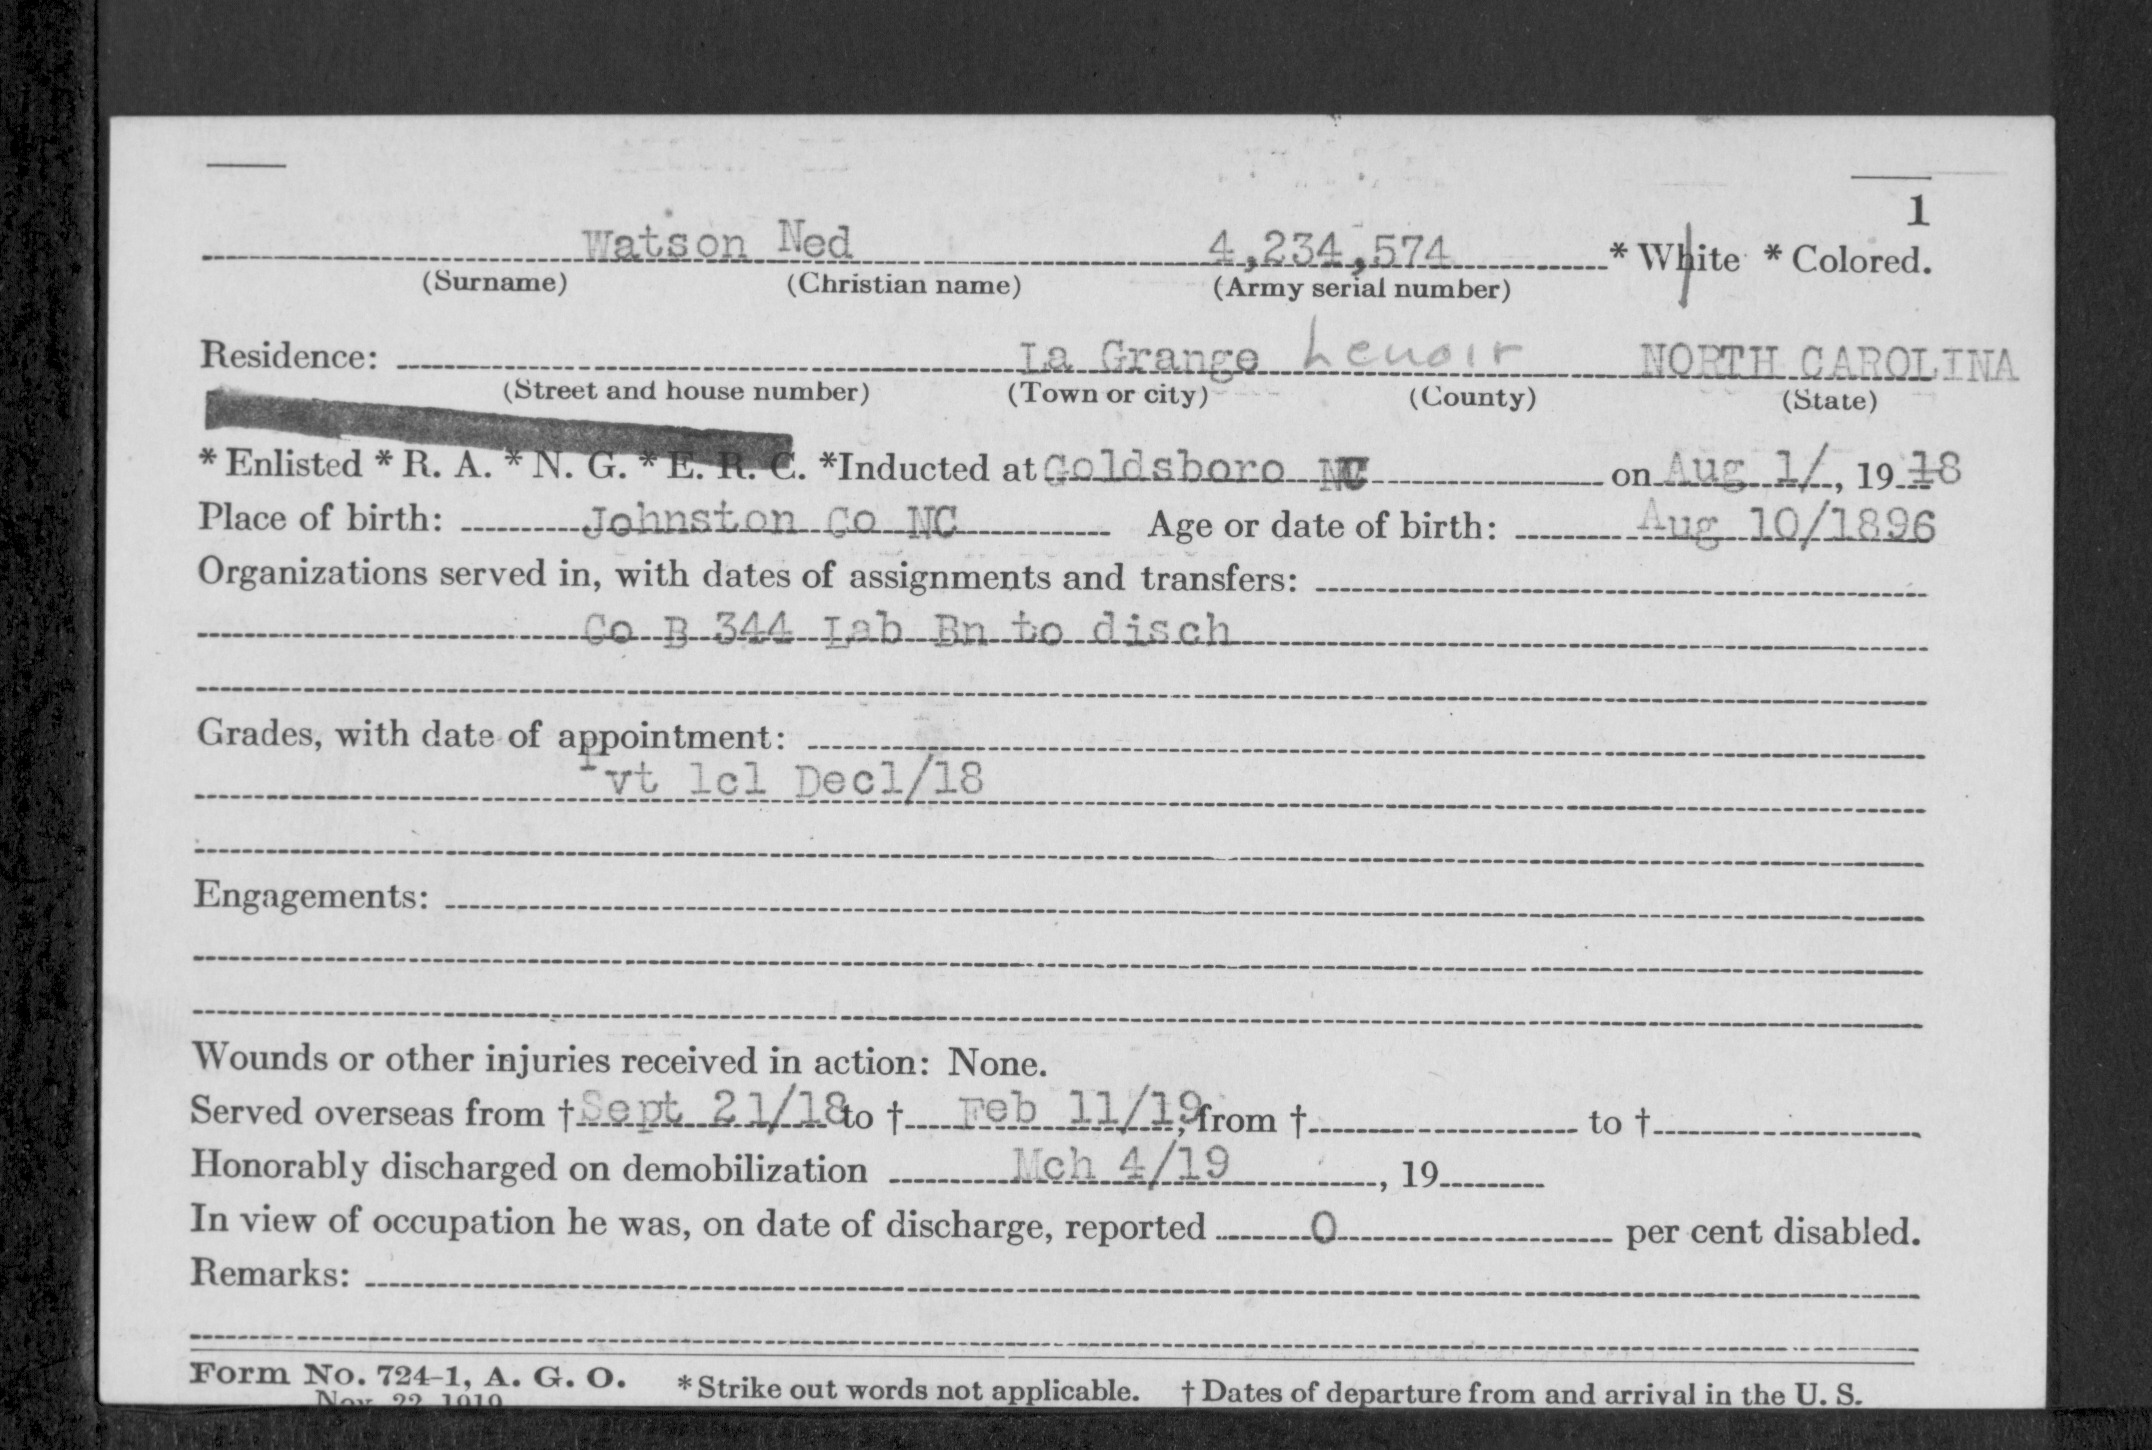 1
Watson Ned 4,234,574 * White * Colored.
(Surname) (Christian name) (Army serial number)
Residence: La Grange Lenoir NORTH CAROLINA
(Street and house number) (Town or city) (County) (State)
* Enlisted * R. A. * N. G. * E. R. C. *Inducted at Goldsboro NC on Aug 1/, 19 18
Place of birth: Johnston Co NC Age or date of birth: Aug 10/1896
Organizations served in, with dates of assignments and transfers:
Co B 344 Lab Bn to disch
Grades, with date of appointment:
Pvt 1cl Dec1/18
Engagements:
Wounds or other injuries received in action: None.
Served overseas from † Sept 21/18 to † Feb 11/19, from † to †
Honorably discharged on demobilization Mch 4/19, 19
In view of occupation he was, on date of discharge, reported 0 per cent disabled.
Remarks:
Form No. 724-1, A. G. O. * Strike out words not applicable. † Dates of departure from and arrival in the U. S.
Nov. 22, 1919